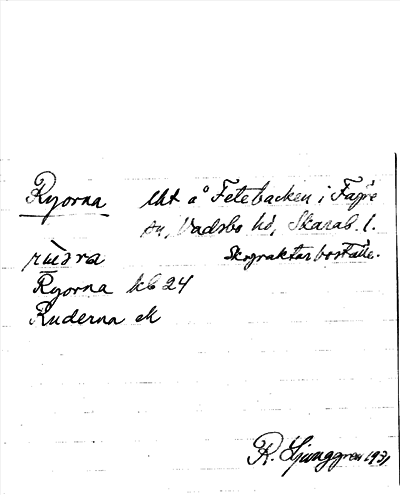 Ryorna lht å Fetebacken i Fägre
sn, Vadsbo hd, Skarab. l.
Skogvaktarboställe.
rùǝra
Ryorna kb 24
Ruderna eK
R. Ljunggren 1931